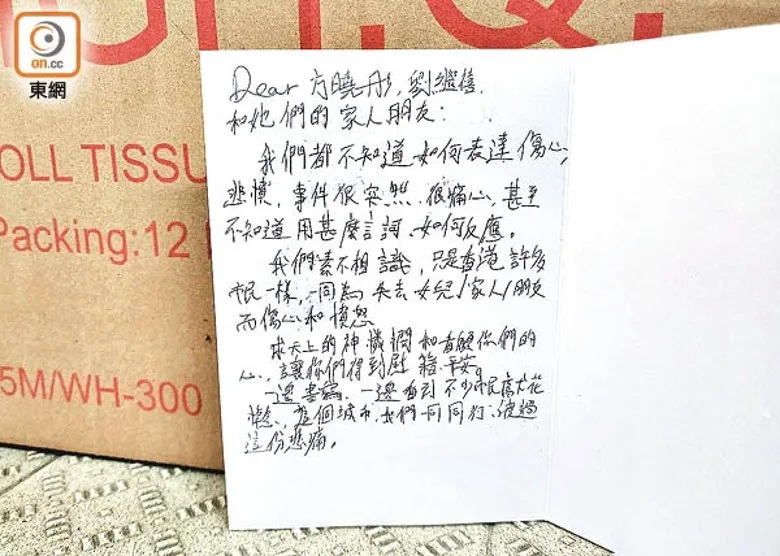 on.cc
東網
OLL TISSU
Packing:12
5M/WH-300
Dear 方曉彤, 劉繼禧
和她們的家人朋友:
我們都不知道如何表達傷心,
悲憤, 事件很突然, 很痛心, 甚至
不知道用甚麼言詞、如何反應。
我們素不相識, 只是香港許多
市民一樣, 一同為失去女兒/家人/朋友
而傷心和憤怒
求天上的神憐憫和看顧你們的
心, 讓你們得到慰藉、平安。
一邊書寫, 一邊看到不少市民獻花
這個城市, 我們一同同行, 渡過
這份悲痛。